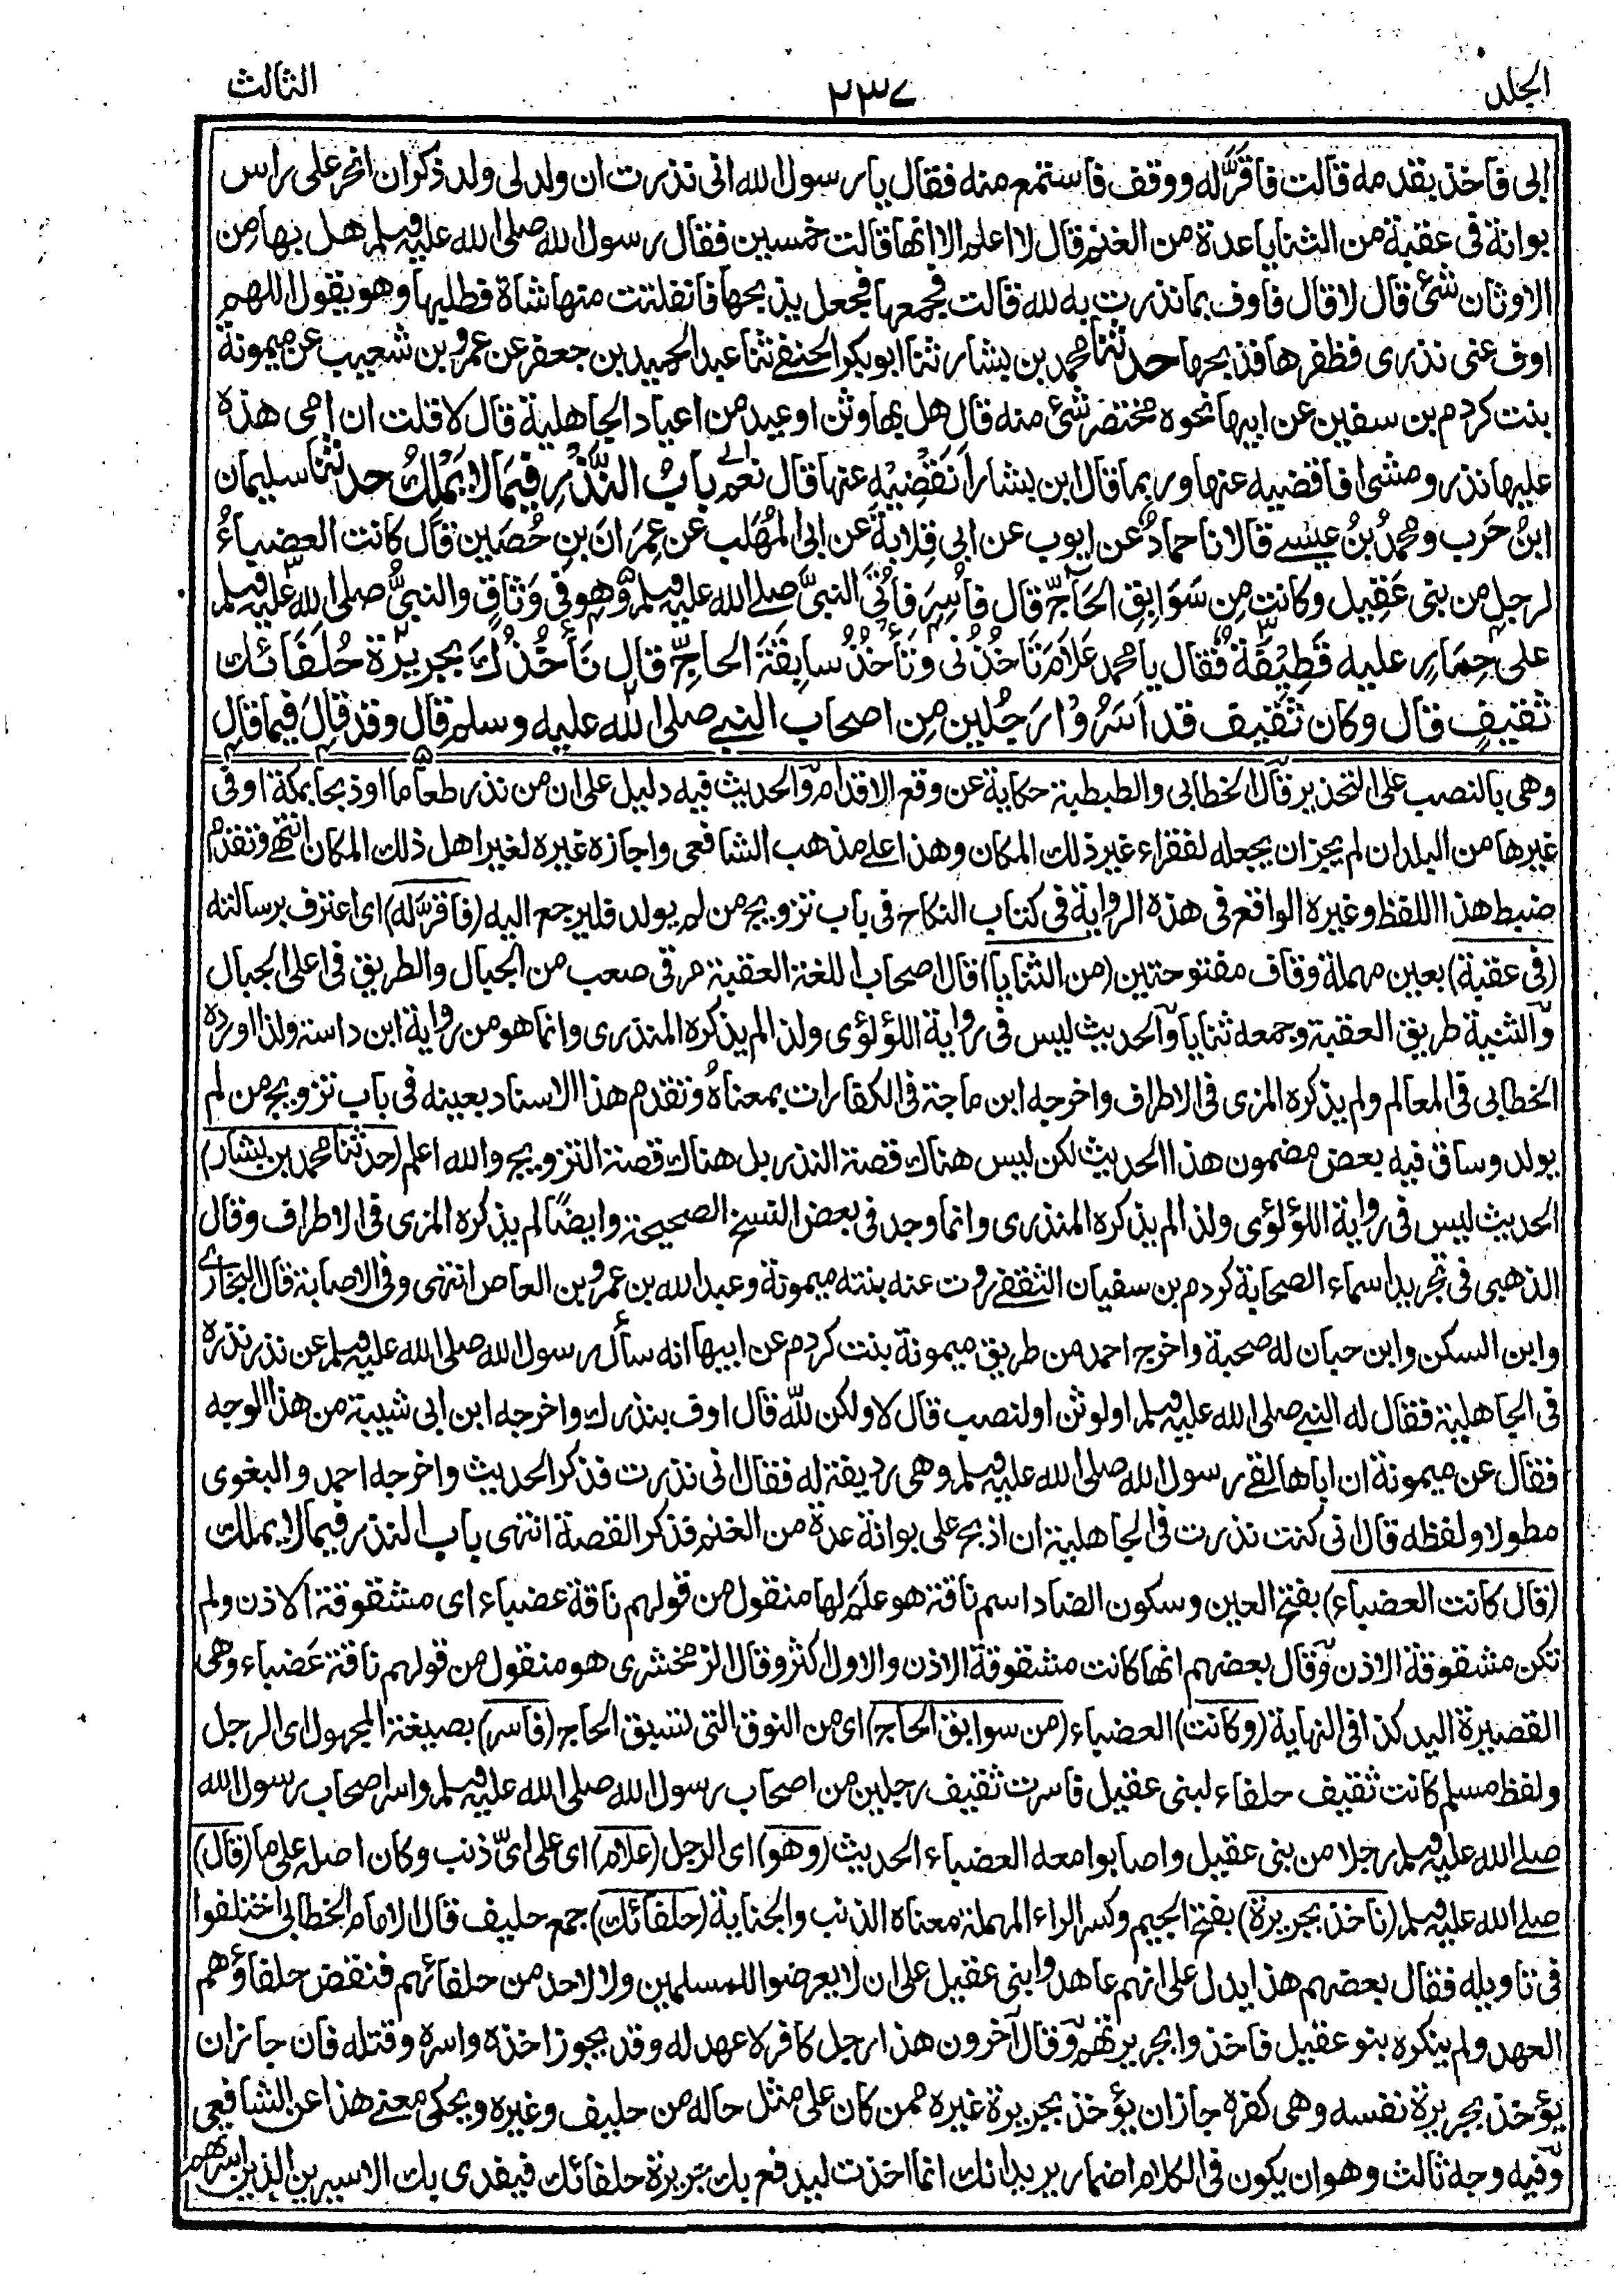 الجلد ٢٣٧ الثالث
ابى فاخذ بقدمه قالت فاقرَّ له ووقف فاستمع منه فقال يا رسول الله انى نذرت ان ولد لى ولد ذكر ان انحر على راس
بوانة فى عقبة من الثنايا عدة من الغنم قال لا اعلم الا انها قالت خمسين فقال رسول الله صلى الله عليه وسلم هل بها من
الاوثان شئ قال لا قال فاوف بما نذرت به لله قالت فجمعها فجعل يذبحها فانفلتت منها شاة فطلبها وهو يقول اللهم
اوف عنى نذرى فظفرها فذبحها حدثنا محمد بن بشار ثنا ابو بكر الحنفي ثنا عبد الحميد بن جعفر عن عمرو بن شعيب عن ميمونة
بنت كردم بن سفين عن ابيها نحوه مختصر شئ منه قال هل بها وثن او عيد من اعياد الجاهلية قال لا قلت ان امى هذه
عليها نذر ومشى افاقضيه عنها وربما قال ابن بشار اَنَقْضِيْه عنها قال نعم بابُ النَّذْرِ فِيمَا لا يَمْلِكُ حدثنا سليمان
ابنُ حَرب ومحمدُ بنُ عيسى قالا نا حمادٌ عن ايوب عن ابى قِلابةَ عن ابى المُهَلب عن عِمرَانَ بنِ حُصَين قال كانت العضباءُ
لرجل من بنى عَقِيل وكانت مِن سَوَابِقِ الحَاجِّ قال فاُسِرَ فاُتِىَ النبىَّ صلى الله عليه وسلم وهو فى وَثَاقٍ والنبىُّ صلى الله عليه وسلم
على حِمَارٍ عليه قَطِيْفَةٌ فقال يا محمد عَلامَ تَاخُذُنى وتَأخُذُ سابِقَةَ الحاجِّ قال نَأخُذُكَ بجريرَة حُلَفَائك
ثقيفٍ قال وكان ثقيف قد اَسَرُوْا رَجُلين مِن اصحاب النبى صلى الله عليه وسلم قال وقد قالَ فيما قال
وهى بالنصب على التحذير قال الخطابى والطبطبة حكاية عن وقع الاقدام والحديث فيه دليل على ان من نذر طعاما او ذبحا بمكة او فى
غيرها من البلدان لم يجز ان يجعله لفقراء غير ذلك المكان وهذا على مذهب الشافعى واجازه غيره لغير اهل ذلك المكان انتهى وتقدم
ضبط هذا اللفظ وغيره الواقع فى هذه الرواية فى كتاب النكاح فى باب تزويج من لم يولد فليرجع اليه (فاقرَّ له) اى اعترف برسالته
(فى عقبة) بعين مهملة وقاف مفتوحتين (من الثنايا) قال اصحاب اللغة العقبة مرقى صعب من الجبال والطريق فى اعلى الجبال
والثنية طريق العقبة وجمعه ثنايا والحديث ليس فى رواية اللؤلؤى ولذا لم يذكره المنذرى وانما هو من رواية ابن داسة ولذا اورده
الخطابى فى المعالم ولم يذكره المزى فى الاطراف واخرجه ابن ماجة فى الكفارات بمعناه وتقدم هذا الاسناد بعينه فى باب تزويج من لم
يولد وساق فيه بعض مضمون هذا الحديث لكن ليس هناك قصة النذر بل هناك قصة التزويج والله اعلم (حدثنا محمد بن بشار)
الحديث ليس فى رواية اللؤلؤى ولذا لم يذكره المنذرى وانما وجد فى بعض النسخ الصحيحة وايضًا لم يذكره المزى فى الاطراف وقال
الذهبى فى تجريد اسماء الصحابة كردم بن سفيان الثقفى روت عنه بنته ميمونة وعبد الله بن عمرو بن العاص انتهى وفى الاصابة قال البخارى
وابن السكن وابن حبان له صحبة واخرج احمد من طريق ميمونة بنت كردم عن ابيها انه سأل رسول الله صلى الله عليه وسلم عن نذر نذره
فى الجاهلية فقال له النبى صلى الله عليه وسلم اولوثن او لنصب قال لا ولكن لله قال اوف بنذرك واخرجه ابن ابى شيبة من هذا الوجه
فقال عن ميمونة ان اباها لقى رسول الله صلى الله عليه وسلم وهى رديفة له فقال انى نذرت فذكر الحديث واخرجه احمد والبغوى
مطولا ولفظه قال انى كنت نذرت فى الجاهلية ان اذبح على بوانة عدة من الغنم فذكر القصة انتهى باب النذر فيما لا يملك
(قال كانت العضباء) بفتح العين وسكون الضاد اسم ناقة هو علَم لها منقول من قولهم ناقة عضباء اى مشقوقة الاذن ولم
تكن مشقوقة الاذن وقال بعضهم انها كانت مشقوقة الاذن والاول اكثر وقال الزمخشرى هو منقول من قولهم ناقة عَضباء وهى
القصيرة اليد كذا فى النهاية (وكانت) العضباء (من سوابق الحاج) اى من النوق التى تسبق الحاج (فاسر) بصيغة المجهول اى الرجل
ولفظ مسلم كانت ثقيف حلفاء لبنى عقيل فاسرت ثقيف رجلين من اصحاب رسول الله صلى الله عليه وسلم واسر اصحاب رسول الله
صلى الله عليه وسلم رجلا من بنى عقيل واصابوا معه العضباء الحديث (وهو) اى الرجل (علام) اى على اىّ ذنب وكان اصله على ما (قال)
صلى الله عليه وسلم (ناخذ بجريرة) بفتح الجيم وكسر الراء المهملة معناه الذنب والجناية (حلفائك) جمع حليف قال الامام الخطابى اختلفوا
فى تاويله فقال بعضهم هذا يدل على انهم عاهدوا بنى عقيل على ان لا يعرضوا للمسلمين ولا لاحد من حلفائهم فنقض حلفاؤهم
العهد ولم ينكره بنو عقيل فاخذوا بجريرتهم وقال آخرون هذا رجل كافر لا عهد له وقد يجوز اخذه واسره وقتله فان جاز ان
يؤخذ بجريرة نفسه وهى كفره جاز ان يؤخذ بجريرة غيره ممن كان على مثل حاله من حليف وغيره ويحكى معنى هذا عن الشافعى
وفيه وجه ثالث وهو ان يكون فى الكلام اضمار يريد انك انما اخذت ليدفع بك جريرة حلفائك فيفدى بك الاسيرين الذين اسرتهم